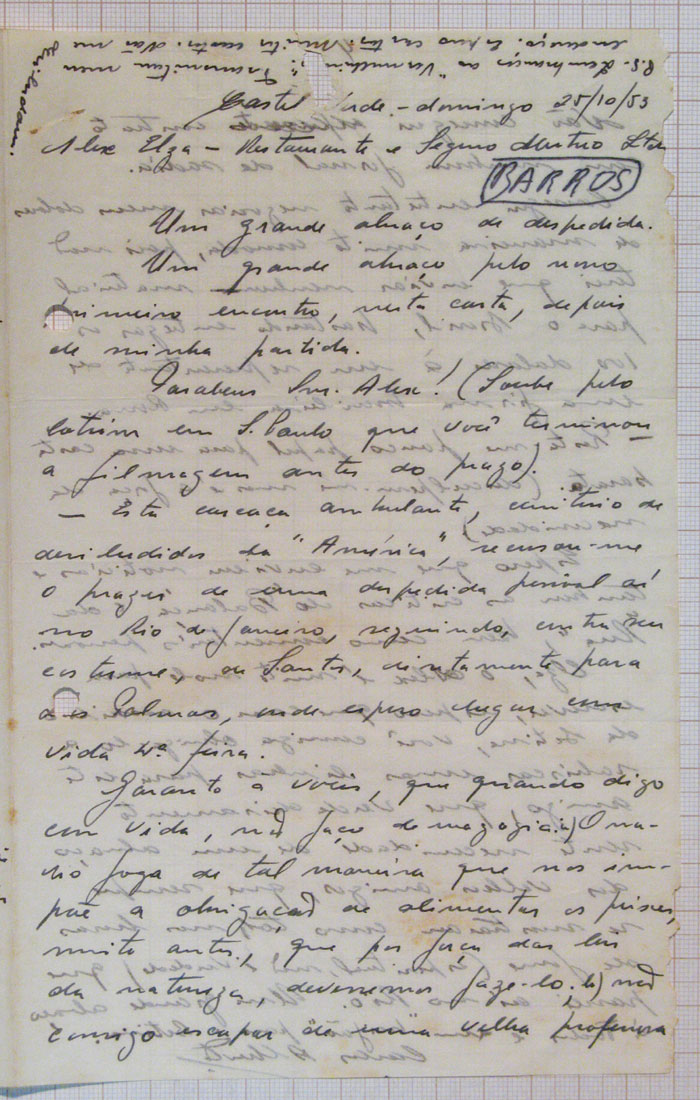 P.S. Lembranças ao "Vermelhinho". Transmitam meu
endereço. Espero cartas. Muitas cartas. Não me
desiludam.
Castel Verde - domingo 25/10/53
Alex Elza - e Seguro Mutuo Ltda
BARROS
Um grande abraço de despedida.
Um grande abraço pelo nosso
primeiro encontro, nesta carta, depois
de minha partida.
Parabens Snr. Alex! (Soube pelo
em S. Paulo que você terminou
a filmagem antes do prazo).
- Esta carcaça ambulante, cemitério de
desiludidos da "América", recusou-me
o prazer de uma despedida pessoal aí
no Rio de Janeiro, seguindo, contra seu
costume, de Santos, diretamente para
Las Palmas, onde espero chegar com
vida 4ª feira.
Garanto a vocês, que quando digo
com vida, não faço demagogia: a) O na-
vio joga de tal maneira que nos im-
põe a obrigação de alimentar os peixes,
muito antes, que por força das leis
da natureza, devessemos faze-lo; b) não
consigo escapar de uma velha professora